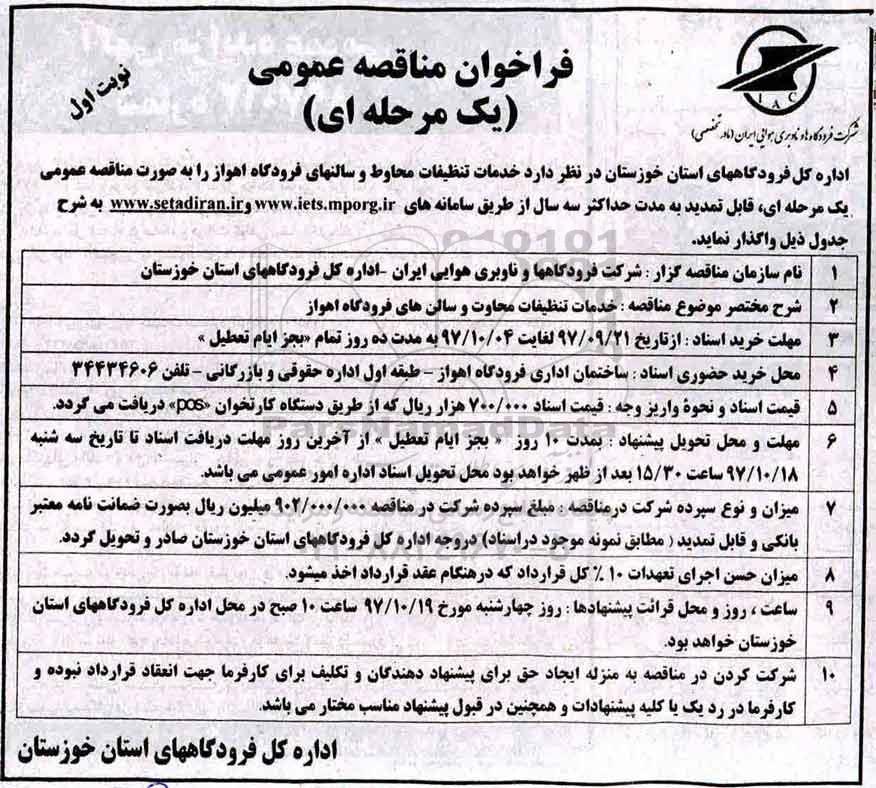 فراخوان مناقصه عمومی
(یک مرحله ای)
نوبت اول
IAC
شرکت فرودگاه‌ها و ناوبری هوایی ایران (مادر تخصصی)
اداره کل فرودگاههای استان خوزستان در نظر دارد خدمات تنظیفات محاوط و سالنهای فرودگاه اهواز را به صورت مناقصه عمومی
یک مرحله ای، قابل تمدید به مدت حداکثر سه سال از طریق سامانه های www.iets.mporg.ir و www.setadiran.ir به شرح
جدول ذیل واگذار نماید.
۱ نام سازمان مناقصه گزار : شرکت فرودگاهها و ناوبری هوایی ایران -اداره کل فرودگاههای استان خوزستان
۲ شرح مختصر موضوع مناقصه : خدمات تنظیفات محاوت و سالن های فرودگاه اهواز
۳ مهلت خرید اسناد : ازتاریخ ۹۷/۰۹/۲۱ لغایت ۹۷/۱۰/۰۴ به مدت ده روز تمام «بجز ایام تعطیل »
۴ محل خرید حضوری اسناد : ساختمان اداری فرودگاه اهواز – طبقه اول اداره حقوقی و بازرگانی – تلفن ۳۴۴۳۴۶۰۶
۵ قیمت اسناد و نحوۀ واریز وجه : قیمت اسناد ۷۰۰/۰۰۰ هزار ریال که از طریق دستگاه کارتخوان «pos» دریافت می گردد.
۶ مهلت و محل تحویل پیشنهاد : بمدت ۱۰ روز « بجز ایام تعطیل » از آخرین روز مهلت دریافت اسناد تا تاریخ سه شنبه
۹۷/۱۰/۱۸ ساعت ۱۵/۳۰ بعد از ظهر خواهد بود محل تحویل اسناد اداره امور عمومی می باشد.
۷ میزان و نوع سپرده شرکت درمناقصه : مبلغ سپرده شرکت در مناقصه ۹۰۲/۰۰۰/۰۰۰ میلیون ریال بصورت ضمانت نامه معتبر
بانکی و قابل تمدید ( مطابق نمونه موجود دراسناد) دروجه اداره کل فرودگاههای استان خوزستان صادر و تحویل گردد.
۸ میزان حسن اجرای تعهدات ۱۰ ٪ کل قرارداد که درهنگام عقد قرارداد اخذ میشود.
۹ ساعت ، روز و محل قرائت پیشنهادها : روز چهارشنبه مورخ ۹۷/۱۰/۱۹ ساعت ۱۰ صبح در محل اداره کل فرودگاههای استان
خوزستان خواهد بود.
۱۰ شرکت کردن در مناقصه به منزله ایجاد حق برای پیشنهاد دهندگان و تکلیف برای کارفرما جهت انعقاد قرارداد نبوده و
کارفرما در رد یک یا کلیه پیشنهادات و همچنین در قبول پیشنهاد مناسب مختار می باشد.
اداره کل فرودگاههای استان خوزستان
ParsNamadData